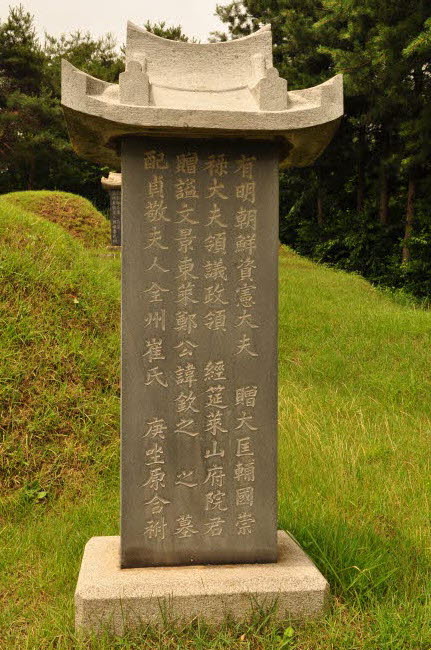 有明朝鮮資憲大夫 贈大匡輔國崇
祿大夫領議政領 經筵萊山府院君
贈謚文景東萊鄭公諱欽之之墓
配貞敬夫人全州崔氏 庚坐原合祔